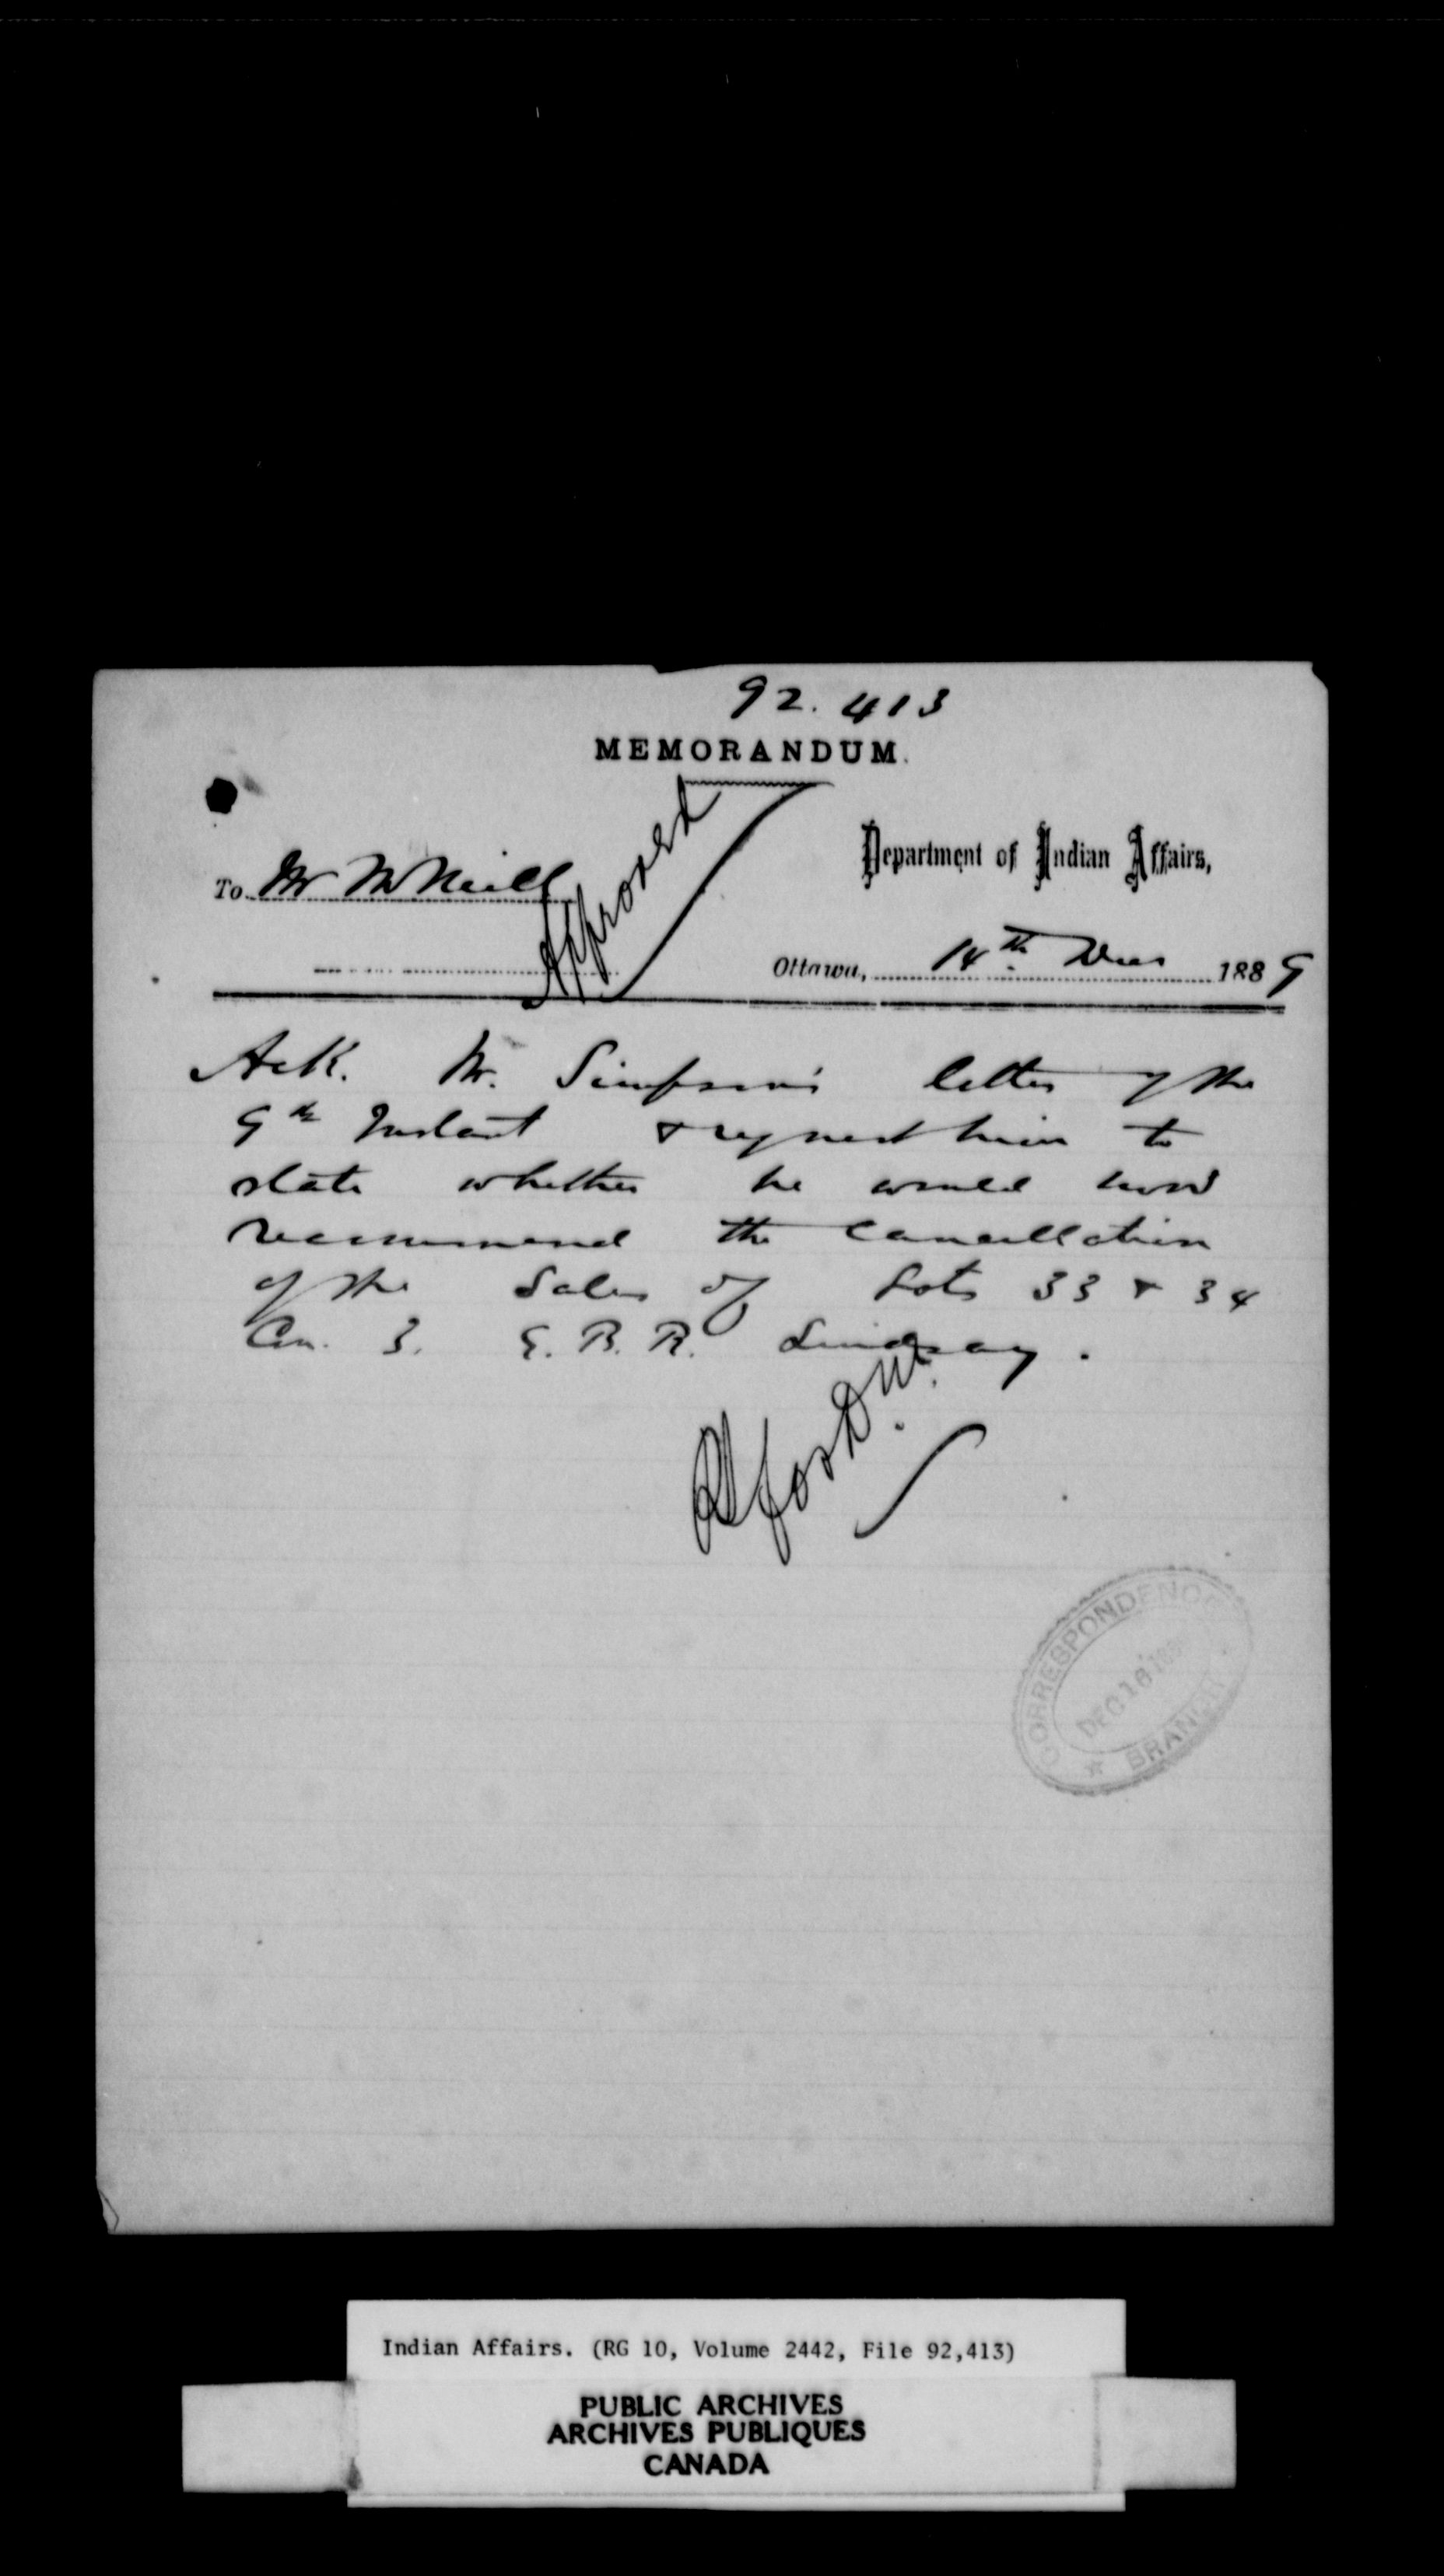 92.413
MEMORANDUM.
Department of Indian Affairs,
To Mr McNeill
Approved
Ottawa, 14th Decr 1889
Ack. Mr. Simpson's letter of the
9th Instant & request him to
state whether he would now
recommend the cancellation
of the Sales of Lots 33 & 34
Con. 3. E.B.R. Lindsay.
CORRESPONDENCE
DEC 16
BRANCH
Indian Affairs. (RG 10, Volume 2442, File 92,413)
PUBLIC ARCHIVES
ARCHIVES PUBLIQUES
CANADA